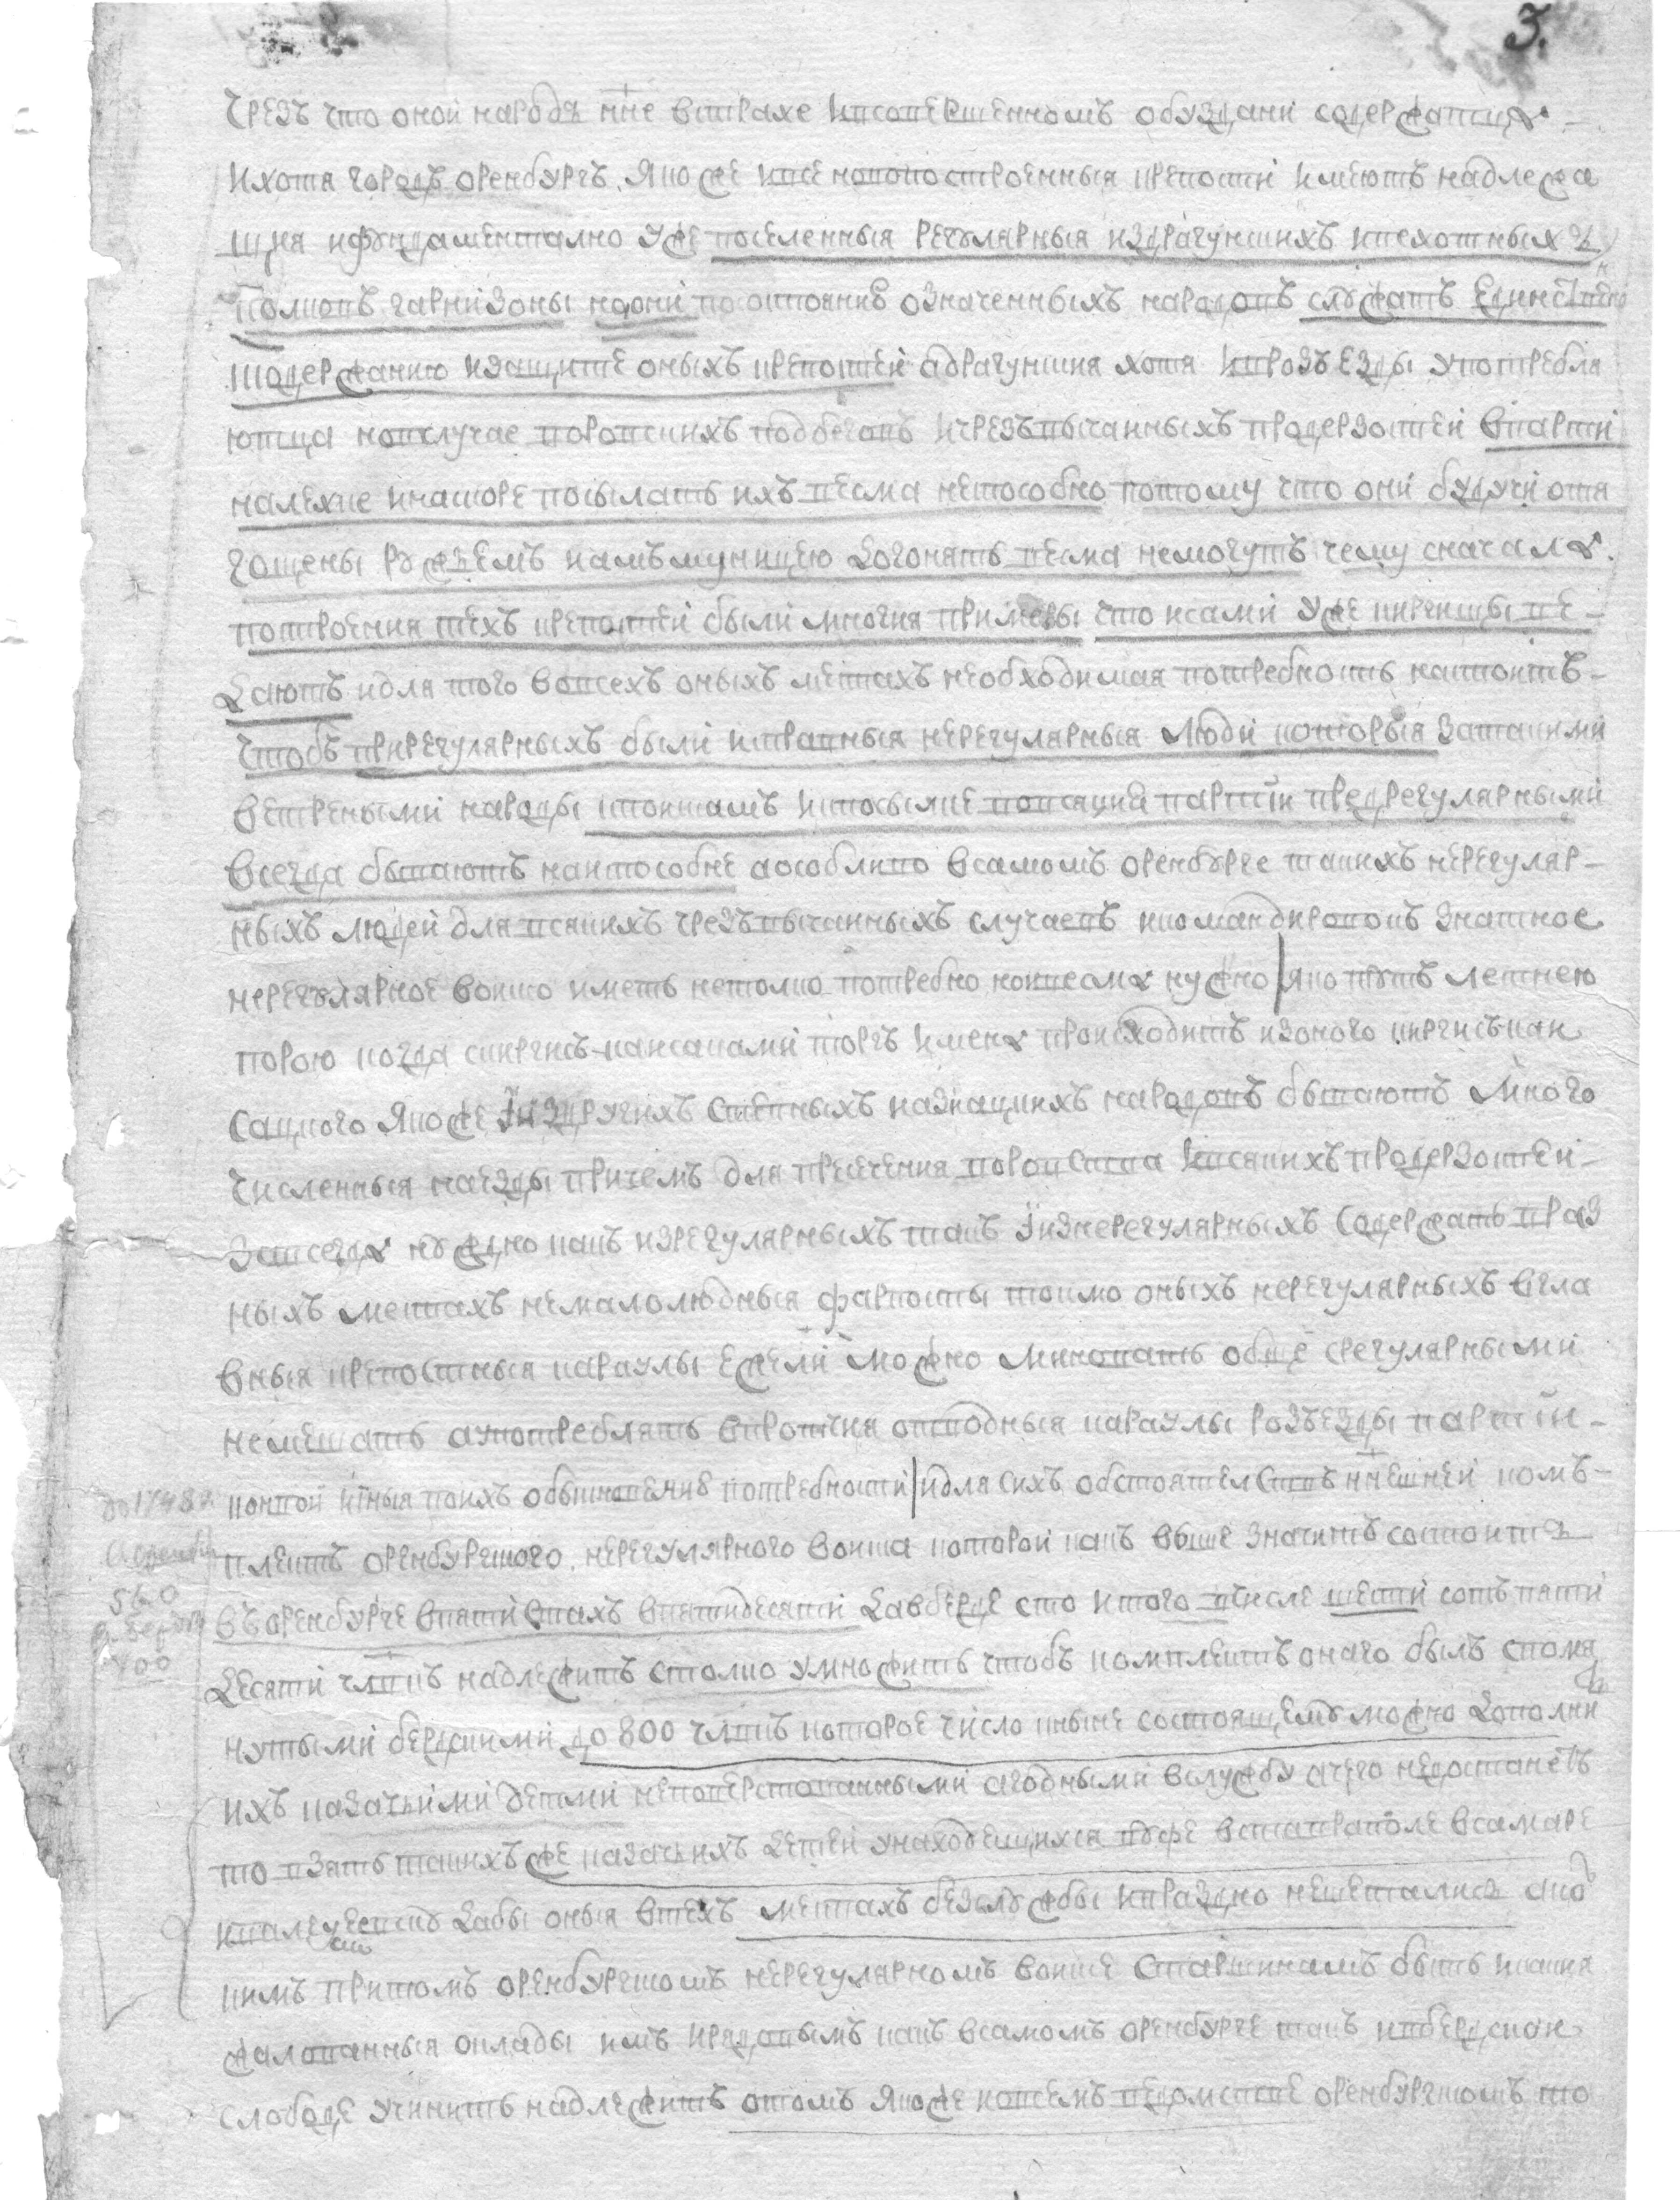 3.
чрезъ что оной народъ нне встрахе ивсовершенномъ обуздани содержатца
ихотя городъ оренбургъ якоже ивсе новопостроенныя крепости имеютъ надлежа
щия ифундаментално уже поселенныя регулярныя издрагунскихъ ипехотныхъ
полковъ гарнизоны нооні посостоянию означенныхъ народовъ служатъ единственно
ксодержанию изащите оныхъ крепостей адрагунския хотя ивразъезды употребля
ютца новслучае воровскихъ подбеговъ ичрезвычайныхъ продерзостей впарти
налехке инаскоре посылать ихъ весма неспособно потому что они будучи отя
гощены ружьемъ иамъмуницею догонять весма немогутъ чему сначала
построения техъ крепостей были многия примеры что исами уже киргисцы ве
дают идля того вовсехъ оныхъ местахъ необходимая потребность настоитъ
чтобъ прирегулярныхъ были исправныя нерегулярныя люди которыя затакими
ветреными народы ипоискамъ ипосылке повсякия партіи предрегулярными
всегда бываютъ наиспособне аособливо всамомъ оренбурге такихъ нерегуляр
ныхъ людей для всякихъ чрезвычайныхъ случаевъ икомандировокъ знатное
нерегулярное воиско иметь нетокмо потребно ноивесма нужно яко тутъ летнею
порою когда скиргисъ кайсаками торгъ имена происходитъ изоного киргисъ кай
сацкого якоже и из другихъ степныхъ иазиацкихъ народовъ бываютъ много
численныя наезды причемъ для пресечения воровства ивсякихъ продерзостей
завсегда нужно какъ изрегулярныхъ такъ и изнерегулярныхъ содержать враз
ныхъ местахъ немалолюдныя фарпосты токмо оныхъ нерегулярныхъ вгла
вныя крепостныя караулы ежели можно миновать обще срегулярными
немешать аупотреблять впротчия отводныя караулы розъезды партіи
конвои ииныя поихъ обыкновению потребности идля сихъ обстоятелствъ ннешней ком
плектъ оренбургского нерегулярного воиска которой какъ выше значитъ состоитъ
въ оренбурге впяти стахъ впятидесяти давберде сто итого вчисле шести сотъ пяти
десяти члвкъ надлежитъ столко умножить чтобъ комплектъ онаго былъ спомя
нутыми бердскими до 800 члвкъ которое число кныне состоящему можно дополни
ихъ казачьими детми неповерстанными агодными вслужбу ачего недостанетъ
то взять такихъ же казачьихъ детей унаходещихся туже вставраполе всамаре
ивалексеевску дабы оныя втехъ местахъ безслужбы ипраздно нешеталися яко
кимъ притомъ оренбургскомъ нерегулярномъ воиске старшинамъ быть икакия
жалованныя оклады имъ ирядовымъ какъ всамомъ оренбурге такъ ивбердской
слободе учинить надлежитъ отомъ якоже ивовсемъ ведомстве оренбургскомъ что